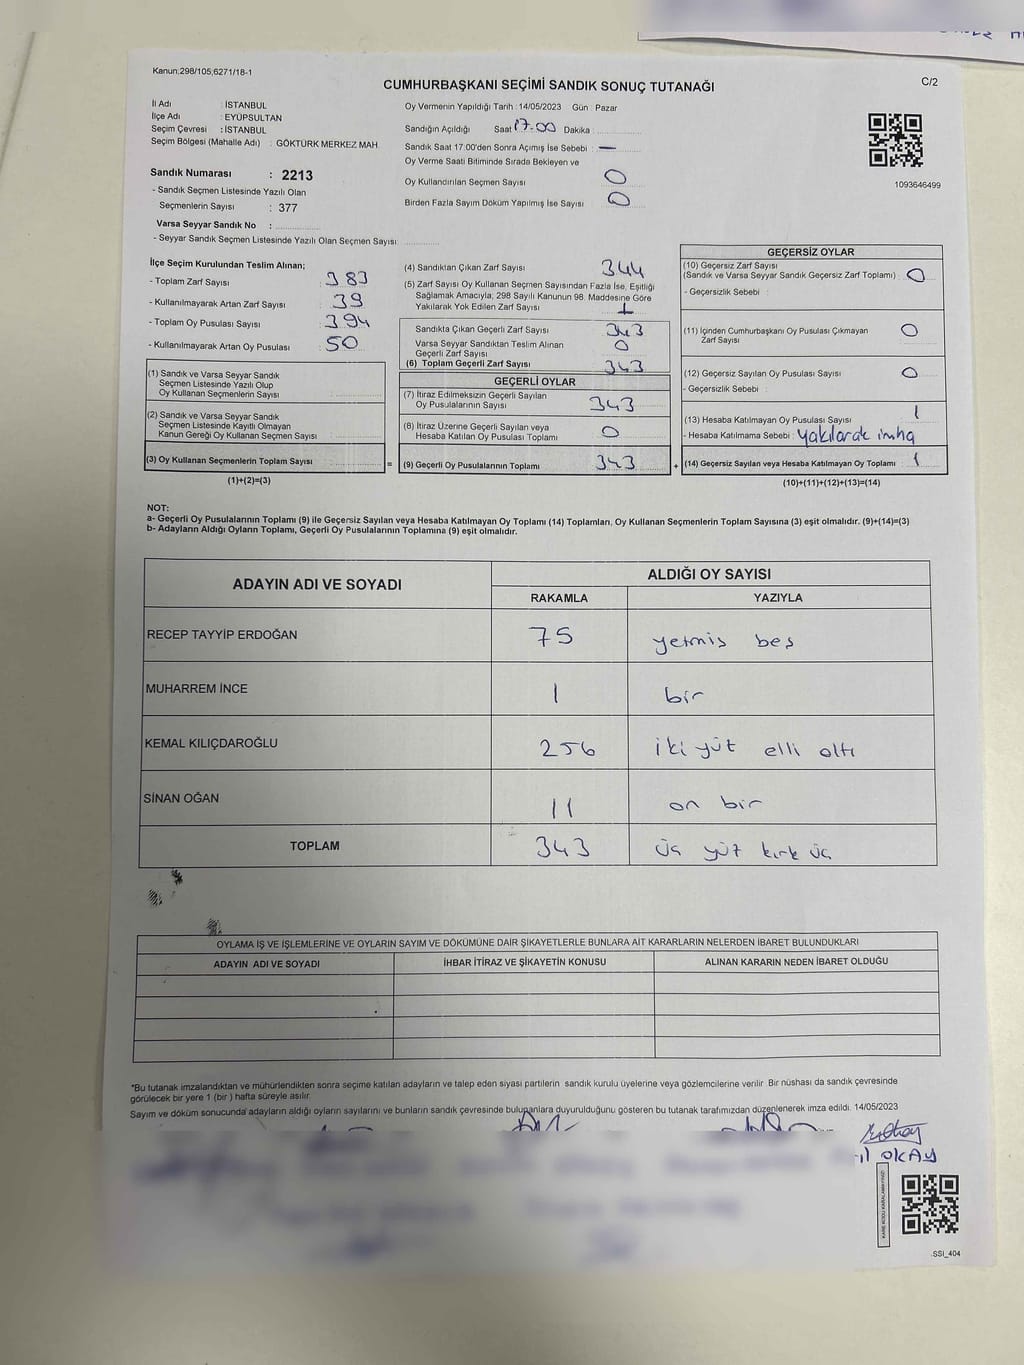 Kanun;298/105;6271/18-1
CUMHURBAŞKANI SEÇİMİ SANDIK SONUÇ TUTANAĞI
C/2
İl Adı : İSTANBUL
İlçe Adı : EYÜPSULTAN
Seçim Çevresi : İSTANBUL
Seçim Bölgesi (Mahalle Adı) : GÖKTÜRK MERKEZ MAH.
Sandık Numarası : 2213
- Sandık Seçmen Listesinde Yazılı Olan
Seçmenlerin Sayısı : 377
Varsa Seyyar Sandık No :
- Seyyar Sandık Seçmen Listesinde Yazılı Olan Seçmen Sayısı:
Oy Vermenin Yapıldığı Tarih : 14/05/2023 Gün : Pazar
Sandığın Açıldığı Saat 17.00 Dakika :
Sandık Saat 17:00'den Sonra Açımış İse Sebebi : —
Oy Verme Saati Bitiminde Sırada Bekleyen ve
Oy Kullandırılan Seçmen Sayısı 0
Birden Fazla Sayım Döküm Yapılmış İse Sayısı : 0
1093646499
İlçe Seçim Kurulundan Teslim Alınan;
- Toplam Zarf Sayısı : 383
- Kullanılmayarak Artan Zarf Sayısı : 39
- Toplam Oy Pusulası Sayısı : 394
- Kullanılmayarak Artan Oy Pusulası : 50
(1) Sandık ve Varsa Seyyar Sandık
Seçmen Listesinde Yazılı Olup
Oy Kullanan Seçmenlerin Sayısı :
(2) Sandık ve Varsa Seyyar Sandık
Seçmen Listesinde Kayıtlı Olmayan
Kanun Gereği Oy Kullanan Seçmen Sayısı :
(3) Oy Kullanan Seçmenlerin Toplam Sayısı =
(1)+(2)=(3)
(4) Sandıktan Çıkan Zarf Sayısı 344
(5) Zarf Sayısı Oy Kullanan Seçmen Sayısından Fazla İse, Eşitliği
Sağlamak Amacıyla; 298 Sayılı Kanunun 98. Maddesine Göre
Yakılarak Yok Edilen Zarf Sayısı : 1
Sandıkta Çıkan Geçerli Zarf Sayısı 343
Varsa Seyyar Sandıktan Teslim Alınan
Geçerli Zarf Sayısı 0
(6) Toplam Geçerli Zarf Sayısı 343
GEÇERLİ OYLAR
(7) İtiraz Edilmeksizin Geçerli Sayılan
Oy Pusulalarının Sayısı 343
(8) İtiraz Üzerine Geçerli Sayılan veya
Hesaba Katılan Oy Pusulası Toplamı 0
(9) Geçerli Oy Pusulalarının Toplamı 343 +
GEÇERSİZ OYLAR
(10) Geçersiz Zarf Sayısı
(Sandık ve Varsa Seyyar Sandık Geçersiz Zarf Toplamı) : 0
- Geçersizlik Sebebi :
(11) İçinden Cumhurbaşkanı Oy Pusulası Çıkmayan
Zarf Sayısı 0
(12) Geçersiz Sayılan Oy Pusulası Sayısı : 0
- Geçersizlik Sebebi :
(13) Hesaba Katılmayan Oy Pusulası Sayısı : 1
- Hesaba Katılmama Sebebi : yakılarak imha
(14) Geçersiz Sayılan veya Hesaba Katılmayan Oy Toplamı : 1
(10)+(11)+(12)+(13)=(14)
NOT:
a- Geçerli Oy Pusulalarının Toplamı (9) ile Geçersiz Sayılan veya Hesaba Katılmayan Oy Toplamı (14) Toplamları, Oy Kullanan Seçmenlerin Toplam Sayısına (3) eşit olmalıdır. (9)+(14)=(3)
b- Adayların Aldığı Oyların Toplamı, Geçerli Oy Pusulalarının Toplamına (9) eşit olmalıdır.
ADAYIN ADI VE SOYADI ALDIĞI OY SAYISI
RAKAMLA YAZIYLA
RECEP TAYYİP ERDOĞAN 75 yetmiş beş
MUHARREM İNCE 1 bir
KEMAL KILIÇDAROĞLU 256 iki yüz elli altı
SİNAN OĞAN 11 on bir
TOPLAM 343 üç yüz kırk üç
OYLAMA İŞ VE İŞLEMLERİNE VE OYLARIN SAYIM VE DÖKÜMÜNE DAİR ŞİKAYETLERLE BUNLARA AİT KARARLARIN NELERDEN İBARET BULUNDUKLARI
ADAYIN ADI VE SOYADI İHBAR İTİRAZ VE ŞİKAYETİN KONUSU ALINAN KARARIN NEDEN İBARET OLDUĞU
*Bu tutanak imzalandıktan ve mühürlendikten sonra seçime katılan adayların ve talep eden siyasi partilerin sandık kurulu üyelerine veya gözlemcilerine verilir. Bir nüshası da sandık çevresinde
görülecek bir yere 1 (bir) hafta süreyle asılır.
Sayım ve döküm sonucunda adayların aldığı oyların sayılarını ve bunların sandık çevresinde bulunanlara duyurulduğunu gösteren bu tutanak tarafımızdan düzenlenerek imza edildi. 14/05/2023
OKAY
SSİ_404